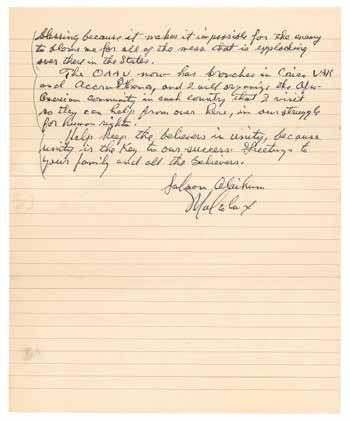 blessing because it makes it impossible for the enemy
to blame me for all of the mess that is exploding
over there in the States.
The OAAU now has branches in Cairo UAR
and Accra Ghana, and I will organize the Afro-
American community in each country that I visit
so they can help from over here, in our struggle
for human rights.
Help keep the believers in unity, because
unity is the key to our success. Greetings to
your family and all the believers.
Salaam Alaikum
Malcolm X